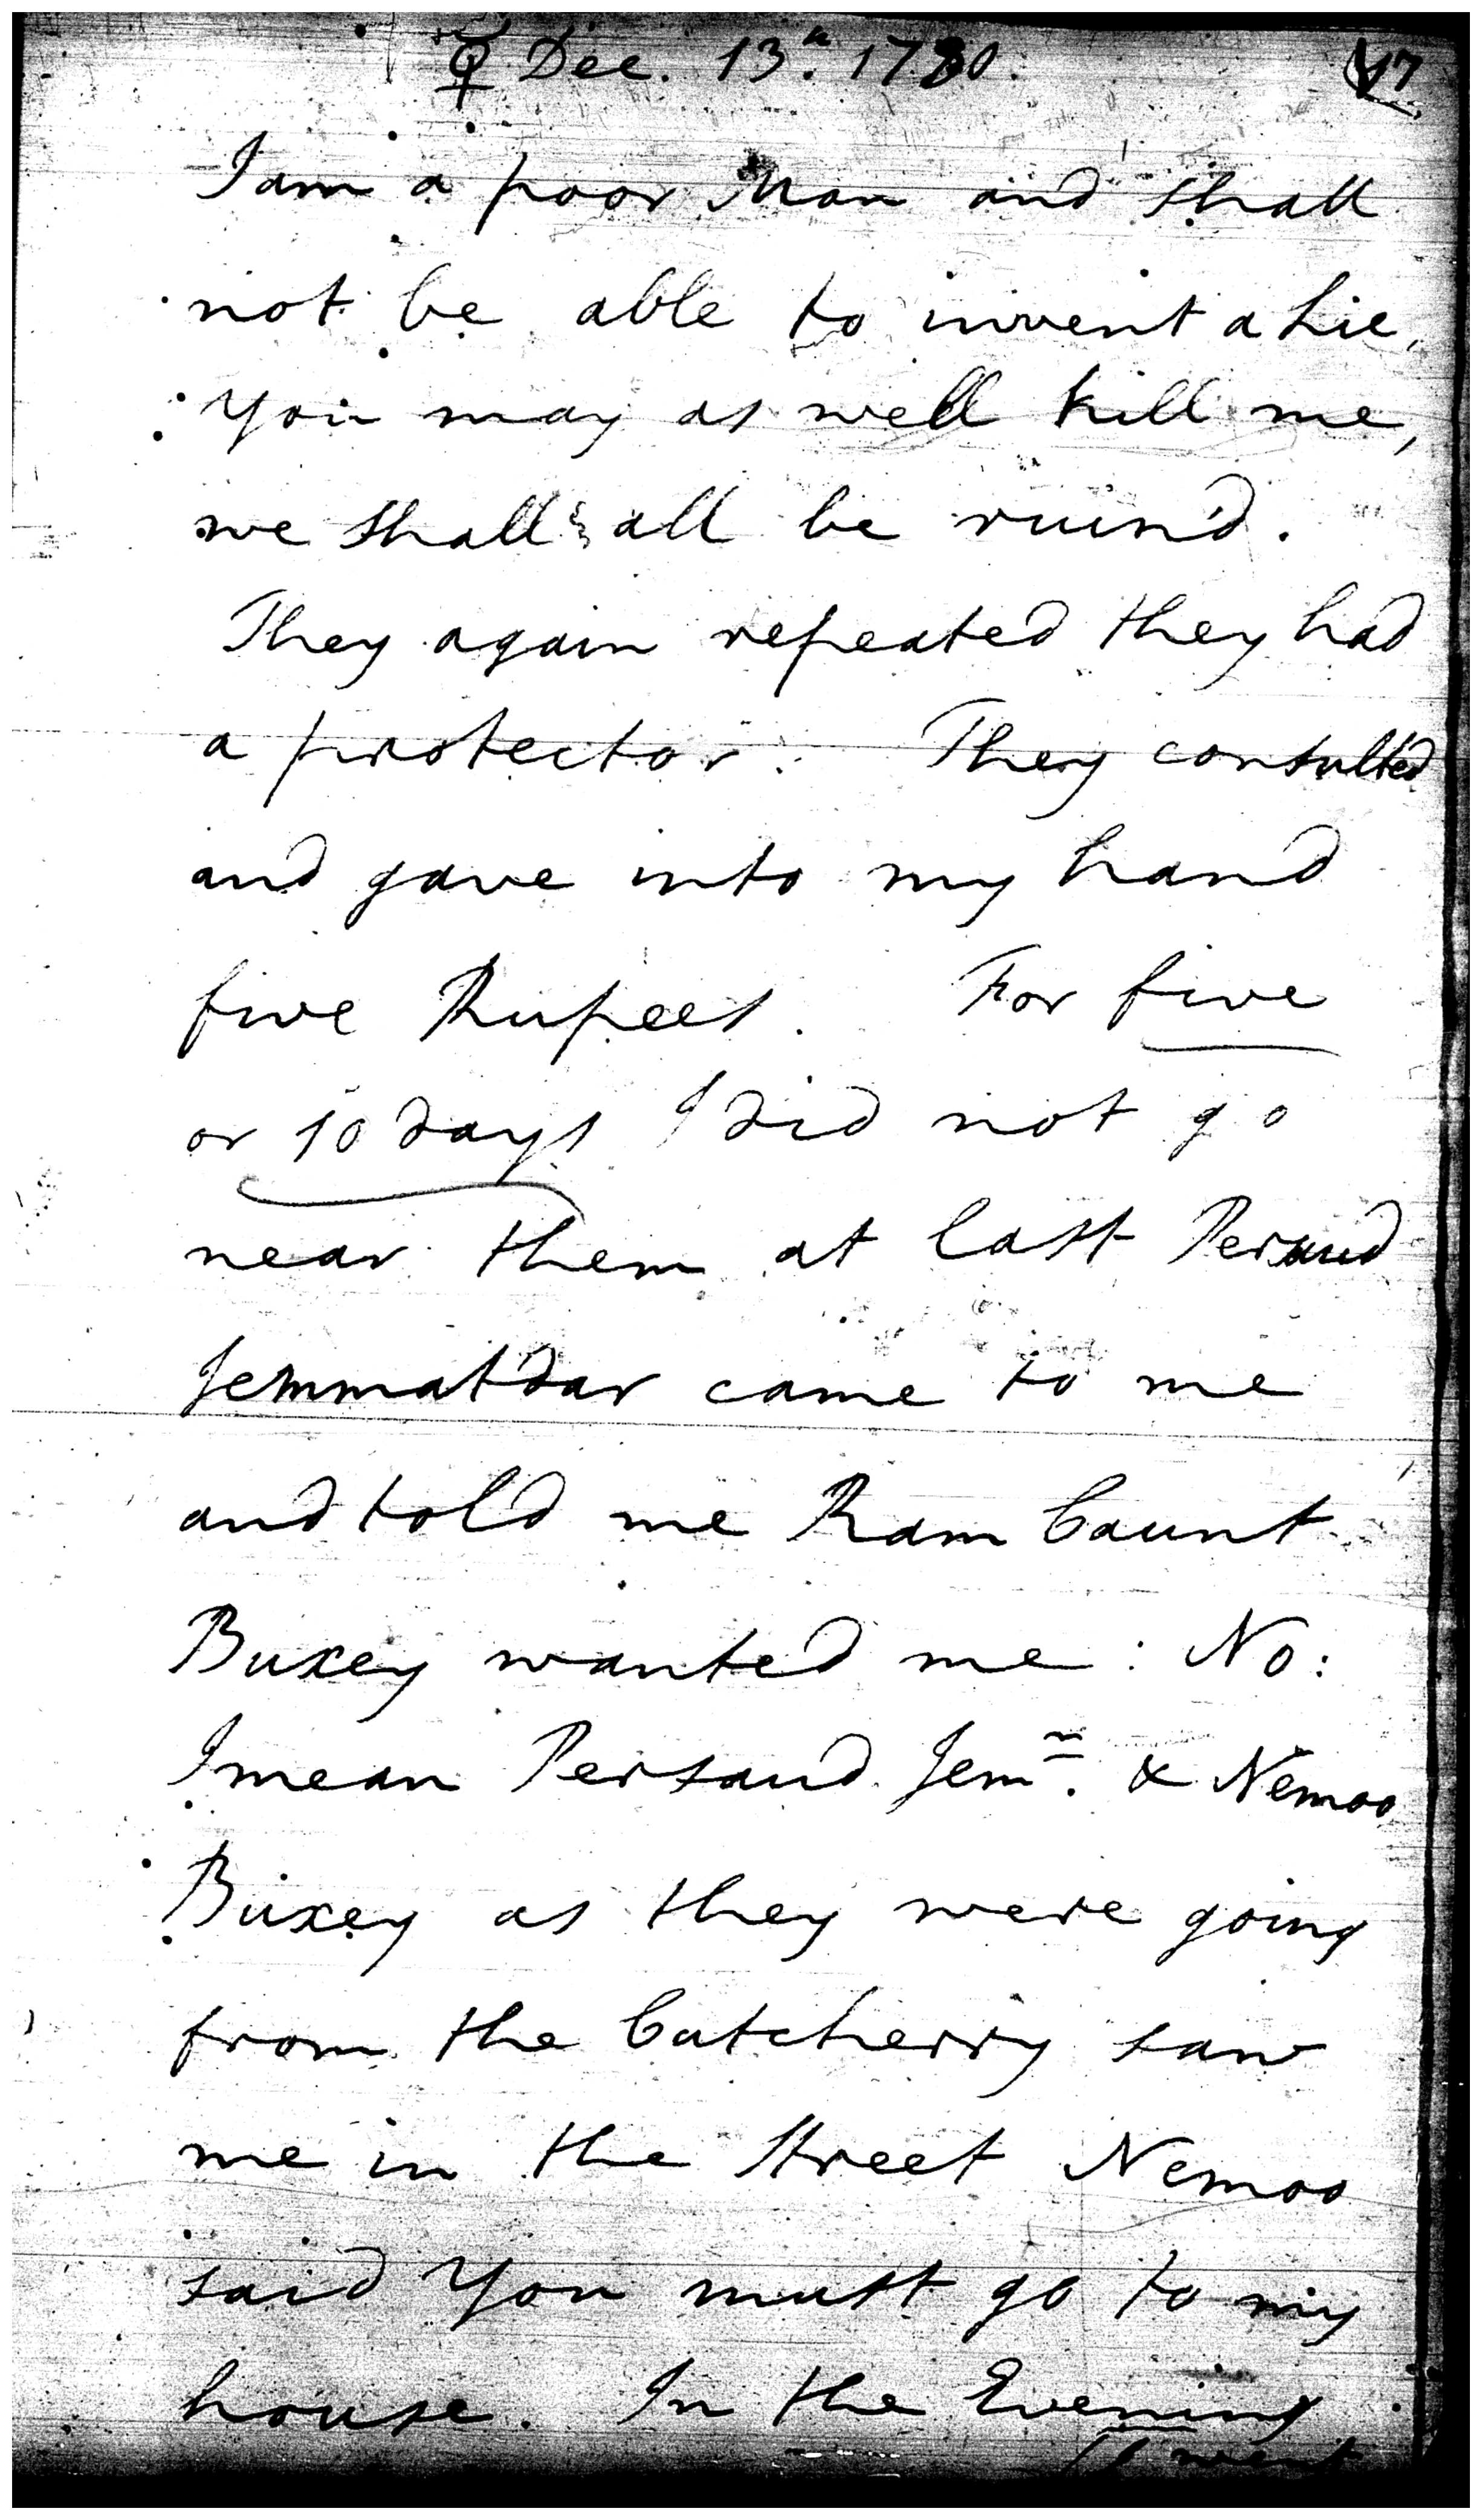 ♀ Dec. 13.th 1780. 47
I am a poor Man and shall
not be able to invent a Lie,
You may as well kill me,
we shall all be ruin'd.
They again repeated they had
a protector. They consulted
and gave into my hand
five Rupees. For five
or 10 days I did not go
near them at last Persaud
Jemmat'dar came to me
and told me Ram Caunt
Buxey wanted me: No:
I mean Persaud Jemr. & Nemoo
Buxey as they were going
from the Cutcherry saw
me in the Street Nemoo
said You must go to my
house. In the Evening
I went